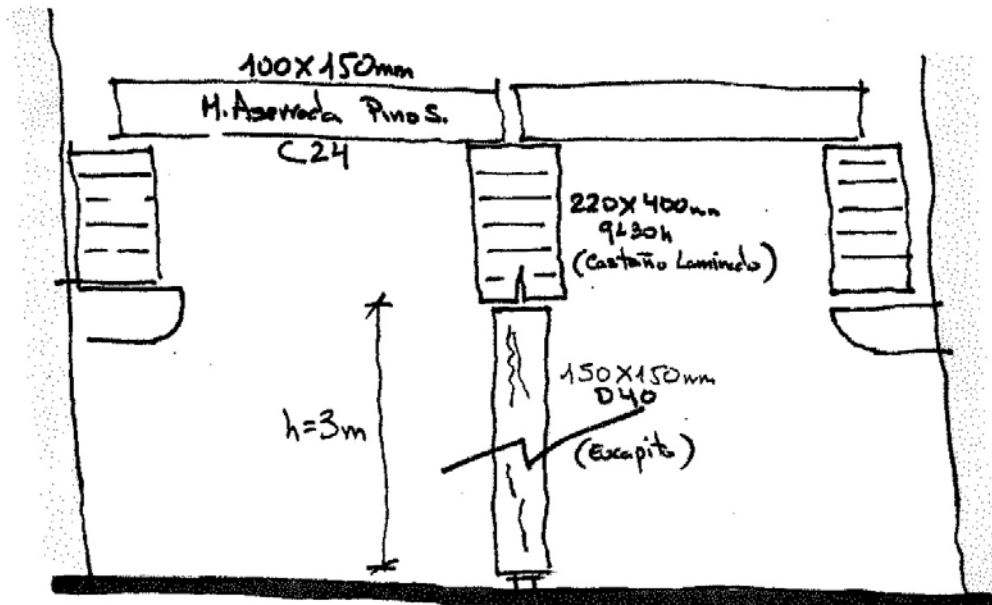 100X150mm
M. Aserrada Pino S.
C24
220X400mm
GL30h
(Castaño Laminado)
150X150mm
D40
h=3m
(Eucapito)